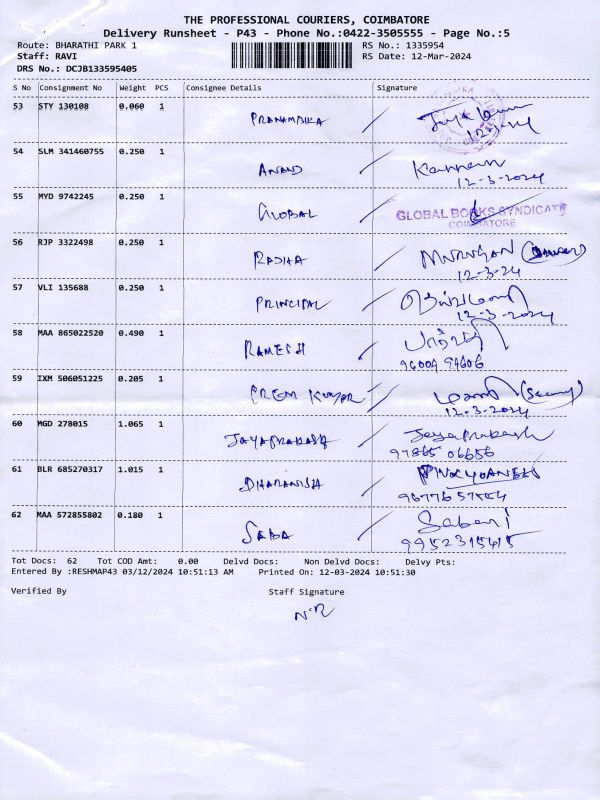 THE PROFESSIONAL COURIERS, COIMBATORE
Delivery Runsheet - P43 - Phone No.:0422-3505555 - Page No.:5
Route: BHARATHI PARK 1 RS No.: 1335954
Staff: RAVI RS Date: 12-Mar-2024
DRS No.: DCJB133595405
S No Consignment No Weight PCS Consignee Details Signature
53 STY 130108 0.060 1 PRANAMBIKA
12-3-24
54 SLM 341460755 0.250 1 ANAND Kannan
12-3-2024
55 MYD 9742245 0.250 1 GLOBAL GLOBAL BOOKS SYNDICATE
COIMBATORE
56 RJP 3322498 0.250 1 RADHA MURUGAN
12-3-24
57 VLI 135688 0.250 1 PRINCIPAL
12-3-2024
58 MAA 865022520 0.490 1 RAMESH
96004 94606
59 IXM 506051225 0.205 1 PREM KUMAR
12-3-2024
60 MGD 278015 1.065 1 JAYAPRAKASH Jayaprakash
97865 06656
61 BLR 685270317 1.015 1 DHARANISH
62 MAA 572855802 0.180 1 SABA Sabari
9952315415
Tot Docs: 62 Tot COD Amt: 0.00 Delvd Docs: Non Delvd Docs: Delvy Pts:
Entered By :RESHMAP43 03/12/2024 10:51:13 AM Printed On: 12-03-2024 10:51:30
Verified By Staff Signature